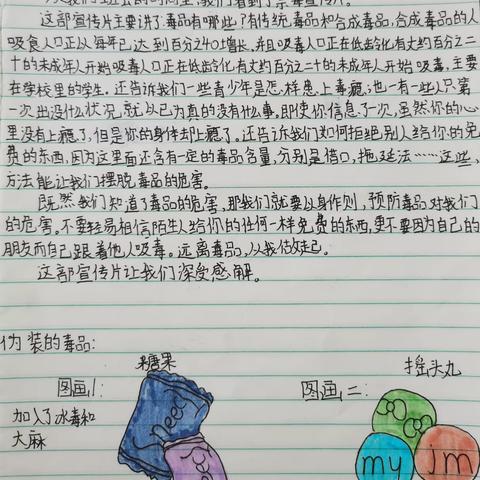 我们看到了禁毒宣传片。
这部宣传片主要讲了毒品有哪些?有传统毒品和合成毒品,合成毒品的人
吸食人口正从每年已达到百分之40增长,并且吸毒人口正在低龄化有大约百分之二
十的未成年人开始吸毒人口正在低龄化有大约百分之二十的未成年人开始吸毒,主要
在学校里的学生。还告诉我们一些青少年是怎样患上毒瘾,也有一些人只第
一次出没什么状况就以已为真的没有什么事。即使你信息了一次,虽然你的心
里没有上瘾了,但是你的身体却上瘾了。还告诉我们如何拒绝别人给你的免
费的东西,因为这里面还含有一定的毒品含量,分别是借口,拖延法……这些,
方法能让我们摆脱毒品的危害。
既然我们知道了毒品的危害,那我们就要以身作则,预防毒品对我们
的危害。不要轻易相信陌生人给你的任何一样免费的东西,更不要因为自己的
朋友而自己跟着他人吸毒。远离毒品,从我做起。
这部宣传片让我们深受感解。
伪装的毒品:
糖果
摇头丸
图画1:
图画二:
加入了冰毒和
大麻
my